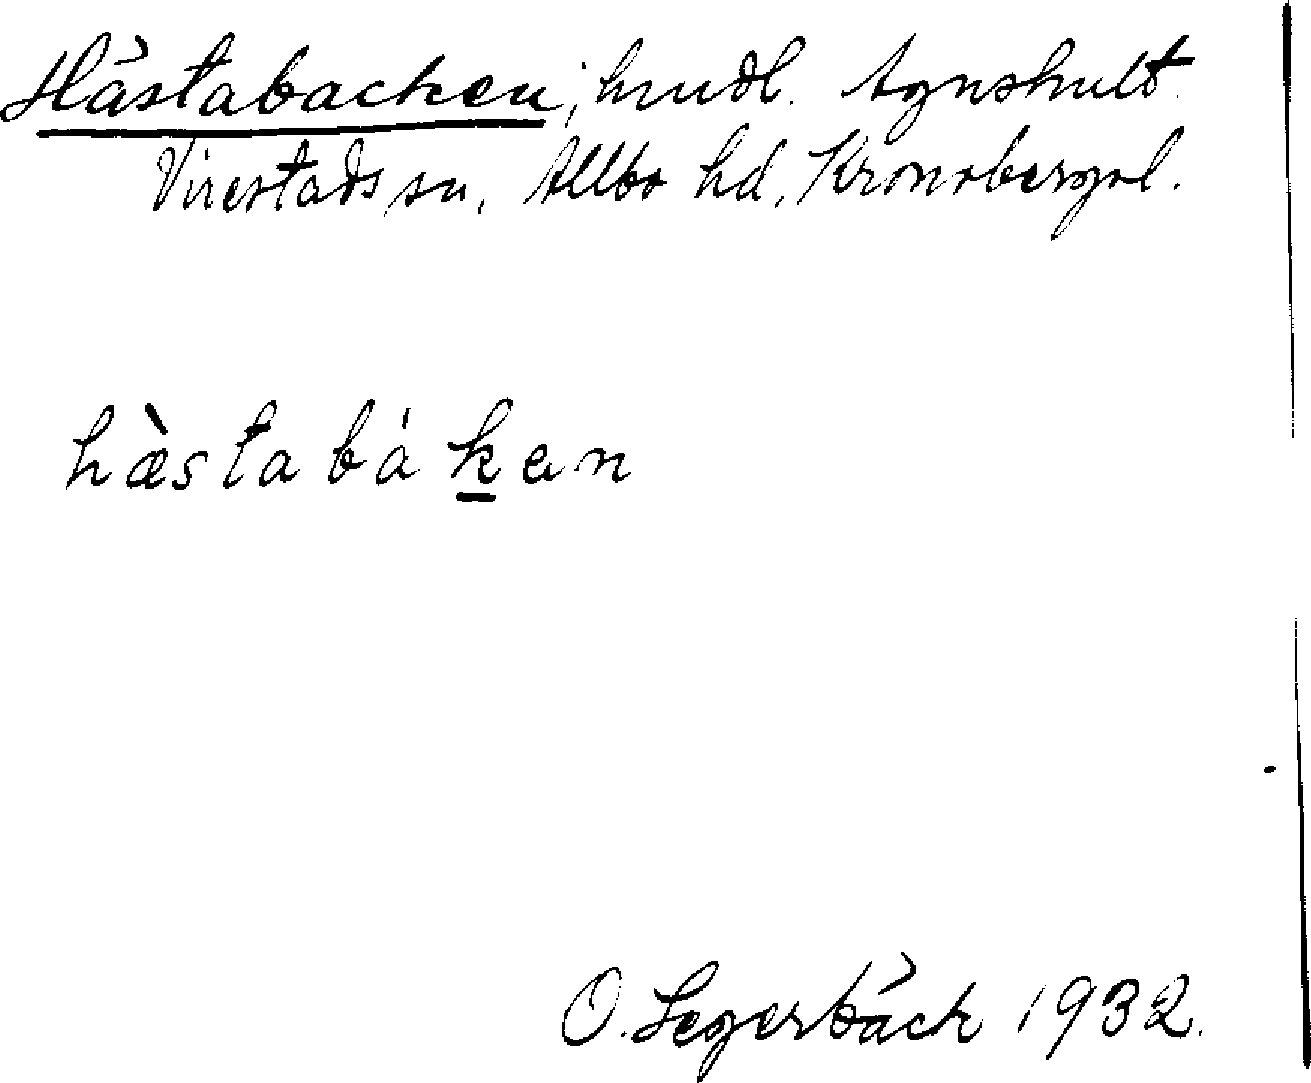 Hästabacken, hmdl. Agnshult
Virestads sn, Allbo hd, Kronobergs l.
hæ̀stabákan
O. Segerbäck 1932.